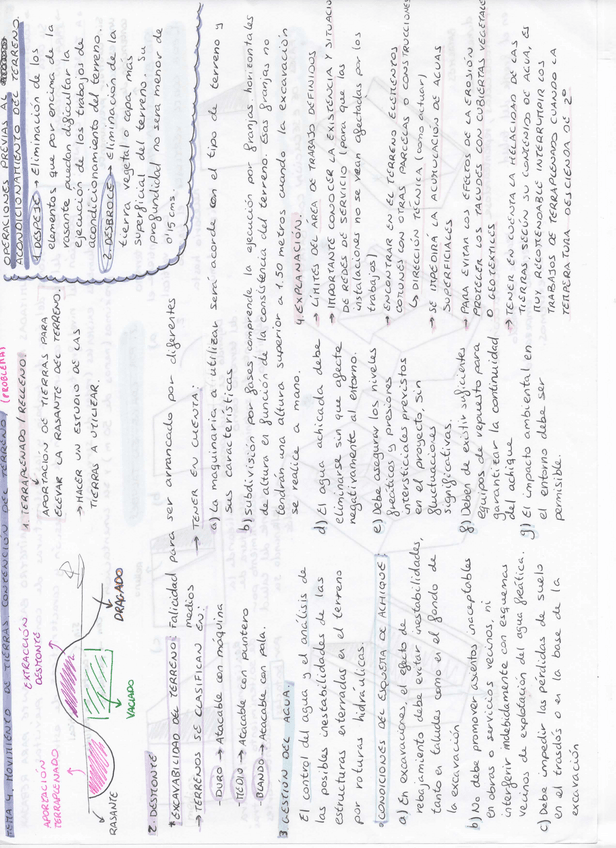 TEMA 4. MOVIMIENTO DE TIERRAS CONTENCIÓN DEL TERRENO (PROBLEMA)
APORTACIÓN
TERRAPLENADO
EXTRACCIÓN
DESMONTE
RASANTE
VACIADO
DRAGADO
1. TERRAPLENADO/RELLENO:
APORTACIÓN DE TIERRAS PARA
ELEVAR LA RASANTE DEL TERRENO.
→ HACER UN ESTUDIO DE LAS
TIERRAS A UTILIZAR.
OPERACIONES PREVIAS AL
ACONDICIONAMIENTO DEL TERRENO.
1. DESPEJE → Eliminación de los
elementos que por encima de la
rasante puedan dificultar la
ejecución de los trabajos de
acondicionamiento del terreno.
2. DESBROCE → Eliminación de la
tierra vegetal o capa más
superficial del terreno. Su
profundidad no será menor de
0'15 cms.
2. DESMONTE
* EXCAVABILIDAD DEL TERRENO: Facilidad para ser arrancado por diferentes
medios
→ TERRENOS SE CLASIFICAN EN:
- DURO → Atacable con máquina
- MEDIO → Atacable con puntero
- BLANDO → Atacable con pala.
→ TENER EN CUENTA:
a) La maquinaria a utilizar será acorde con el tipo de terreno y
sus características
b) Subdivisión por fases comprende la ejecución por franjas horizontales
de altura en función de la consistencia del terreno. Esas franjas no
tendrán una altura superior a 1.50 metros cuando la excavación
se realice a mano.
3. GESTIÓN DEL AGUA.
El control del agua y el análisis de
las posibles inestabilidades de las
estructuras enterradas en el terreno
por roturas hidráulicas.
CONDICIONES DEL ESQUEMA DE ACHIQUE:
a) En excavaciones, el efecto de
rebajamiento debe evitar inestabilidades,
tanto en taludes como en el fondo de
la excavación
b) No debe promover asientos inaceptables
en obras o servicios vecinos, ni
interferir indebidamente con esquemas
vecinos de explotación del agua freática.
c) Debe impedir las pérdidas de suelo
en el trasdós o en la base de la
excavación
d) El agua achicada debe
eliminarse sin que afecte
negativamente al entorno.
e) Debe asegurar los niveles
freáticos y presiones
intersticiales previstos
en el proyecto, sin
fluctuaciones
significativas.
f) Deben de existir suficientes
equipos de repuesto para
garantizar la continuidad
del achique
g) El impacto ambiental en
el entorno debe ser
permisible.
4. EXPLANACIÓN
→ LÍMITES DEL ÁREA DE TRABAJO DEFINIDOS
→ IMPORTANTE CONOCER LA EXISTENCIA Y SITUACI
DE REDES DE SERVICIO (para que las
instalaciones no se vean afectadas por los
trabajos)
→ ENCONTRAR EN EL TERRENO ELEMENTOS
COMUNES CON OTRAS PARCELAS O CONSTRUCCIONES
↳ DIRECCIÓN TÉCNICA (como actuar)
→ SE IMPEDIRÁ LA ACUMULACIÓN DE AGUAS
SUPERFICIALES
→ PARA EVITAR LOS EFECTOS DE LA EROSIÓN
PROTEGER LOS TALUDES CON CUBIERTAS VEGETALE
O GEOTEXTILES
→ TENER EN CUENTA LA HELACIDAD DE LAS
TIERRAS, SEGÚN SU CONTENIDO DE AGUA, ES
MUY RECOMENDABLE INTERRUMPIR LOS
TRABAJOS DE TERRAPLENADO CUANDO LA
TEMPERATURA DESCIENDA DE 2º